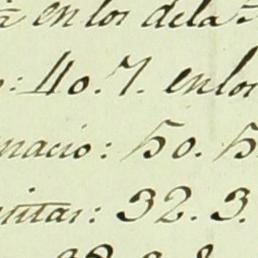 en los de la
: 40. 7. en los
nacio: 50. 5
nitas: 32. 3.